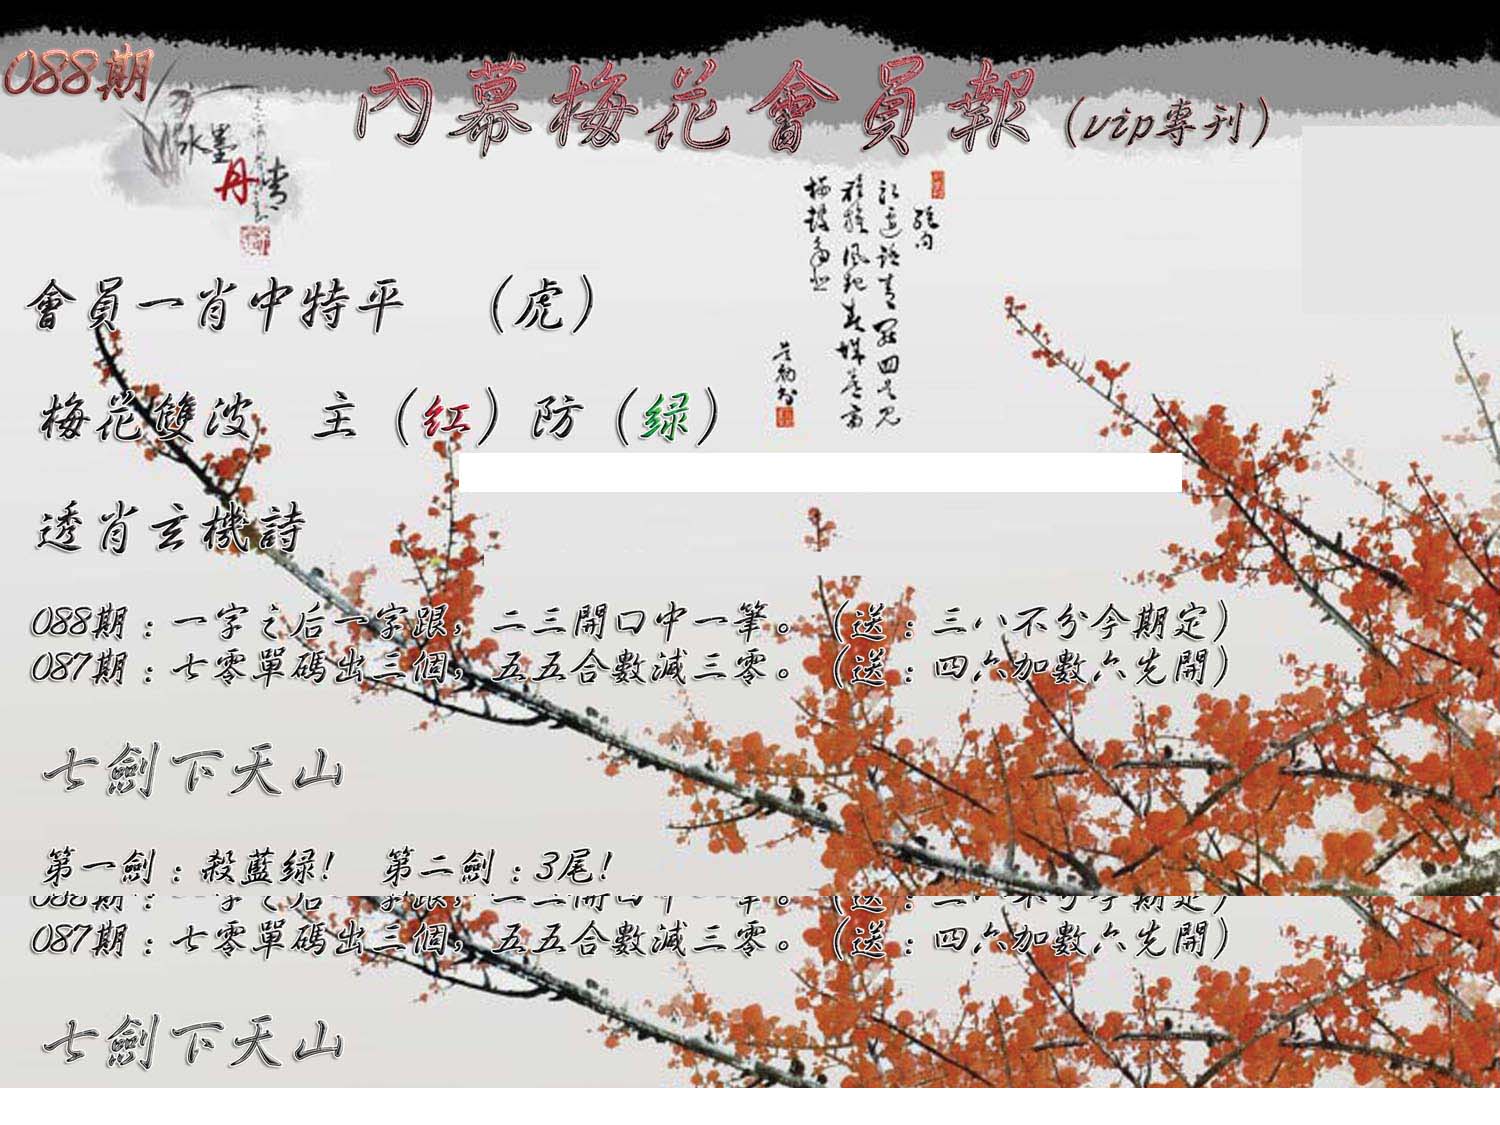 088期
內幕梅花會員報(vip專刊)
水墨
丹青
會員一肖中特平 (虎)
梅花雙波 主(红)防(绿)
透肖玄機詩
088期:一字之后一字跟,二三開口中一筆。(送:三八不分今期定)
087期:七零單碼出三個,五五合數減三零。(送:四六加數六先開)
七劍下天山
第一劍:殺藍绿! 第二劍:3尾!
088期:一字之后一字跟,二三開口中一筆。(送:三八不分今期定)
087期:七零單碼出三個,五五合數減三零。(送:四六加數六先開)
七劍下天山